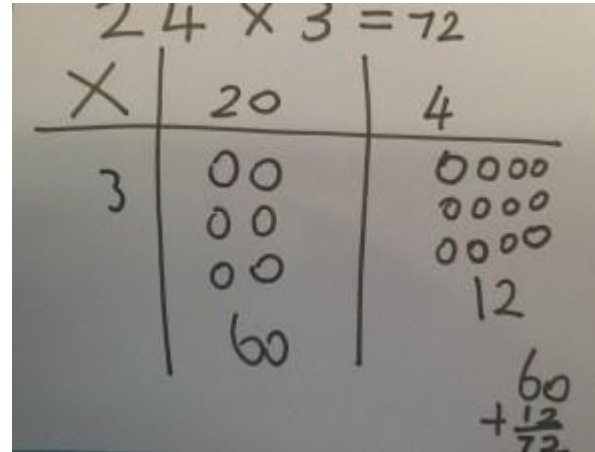 24 × 3 = 72
× 20 4
3 00 0000
00 0000
00 0000
12
60
60
+12
72